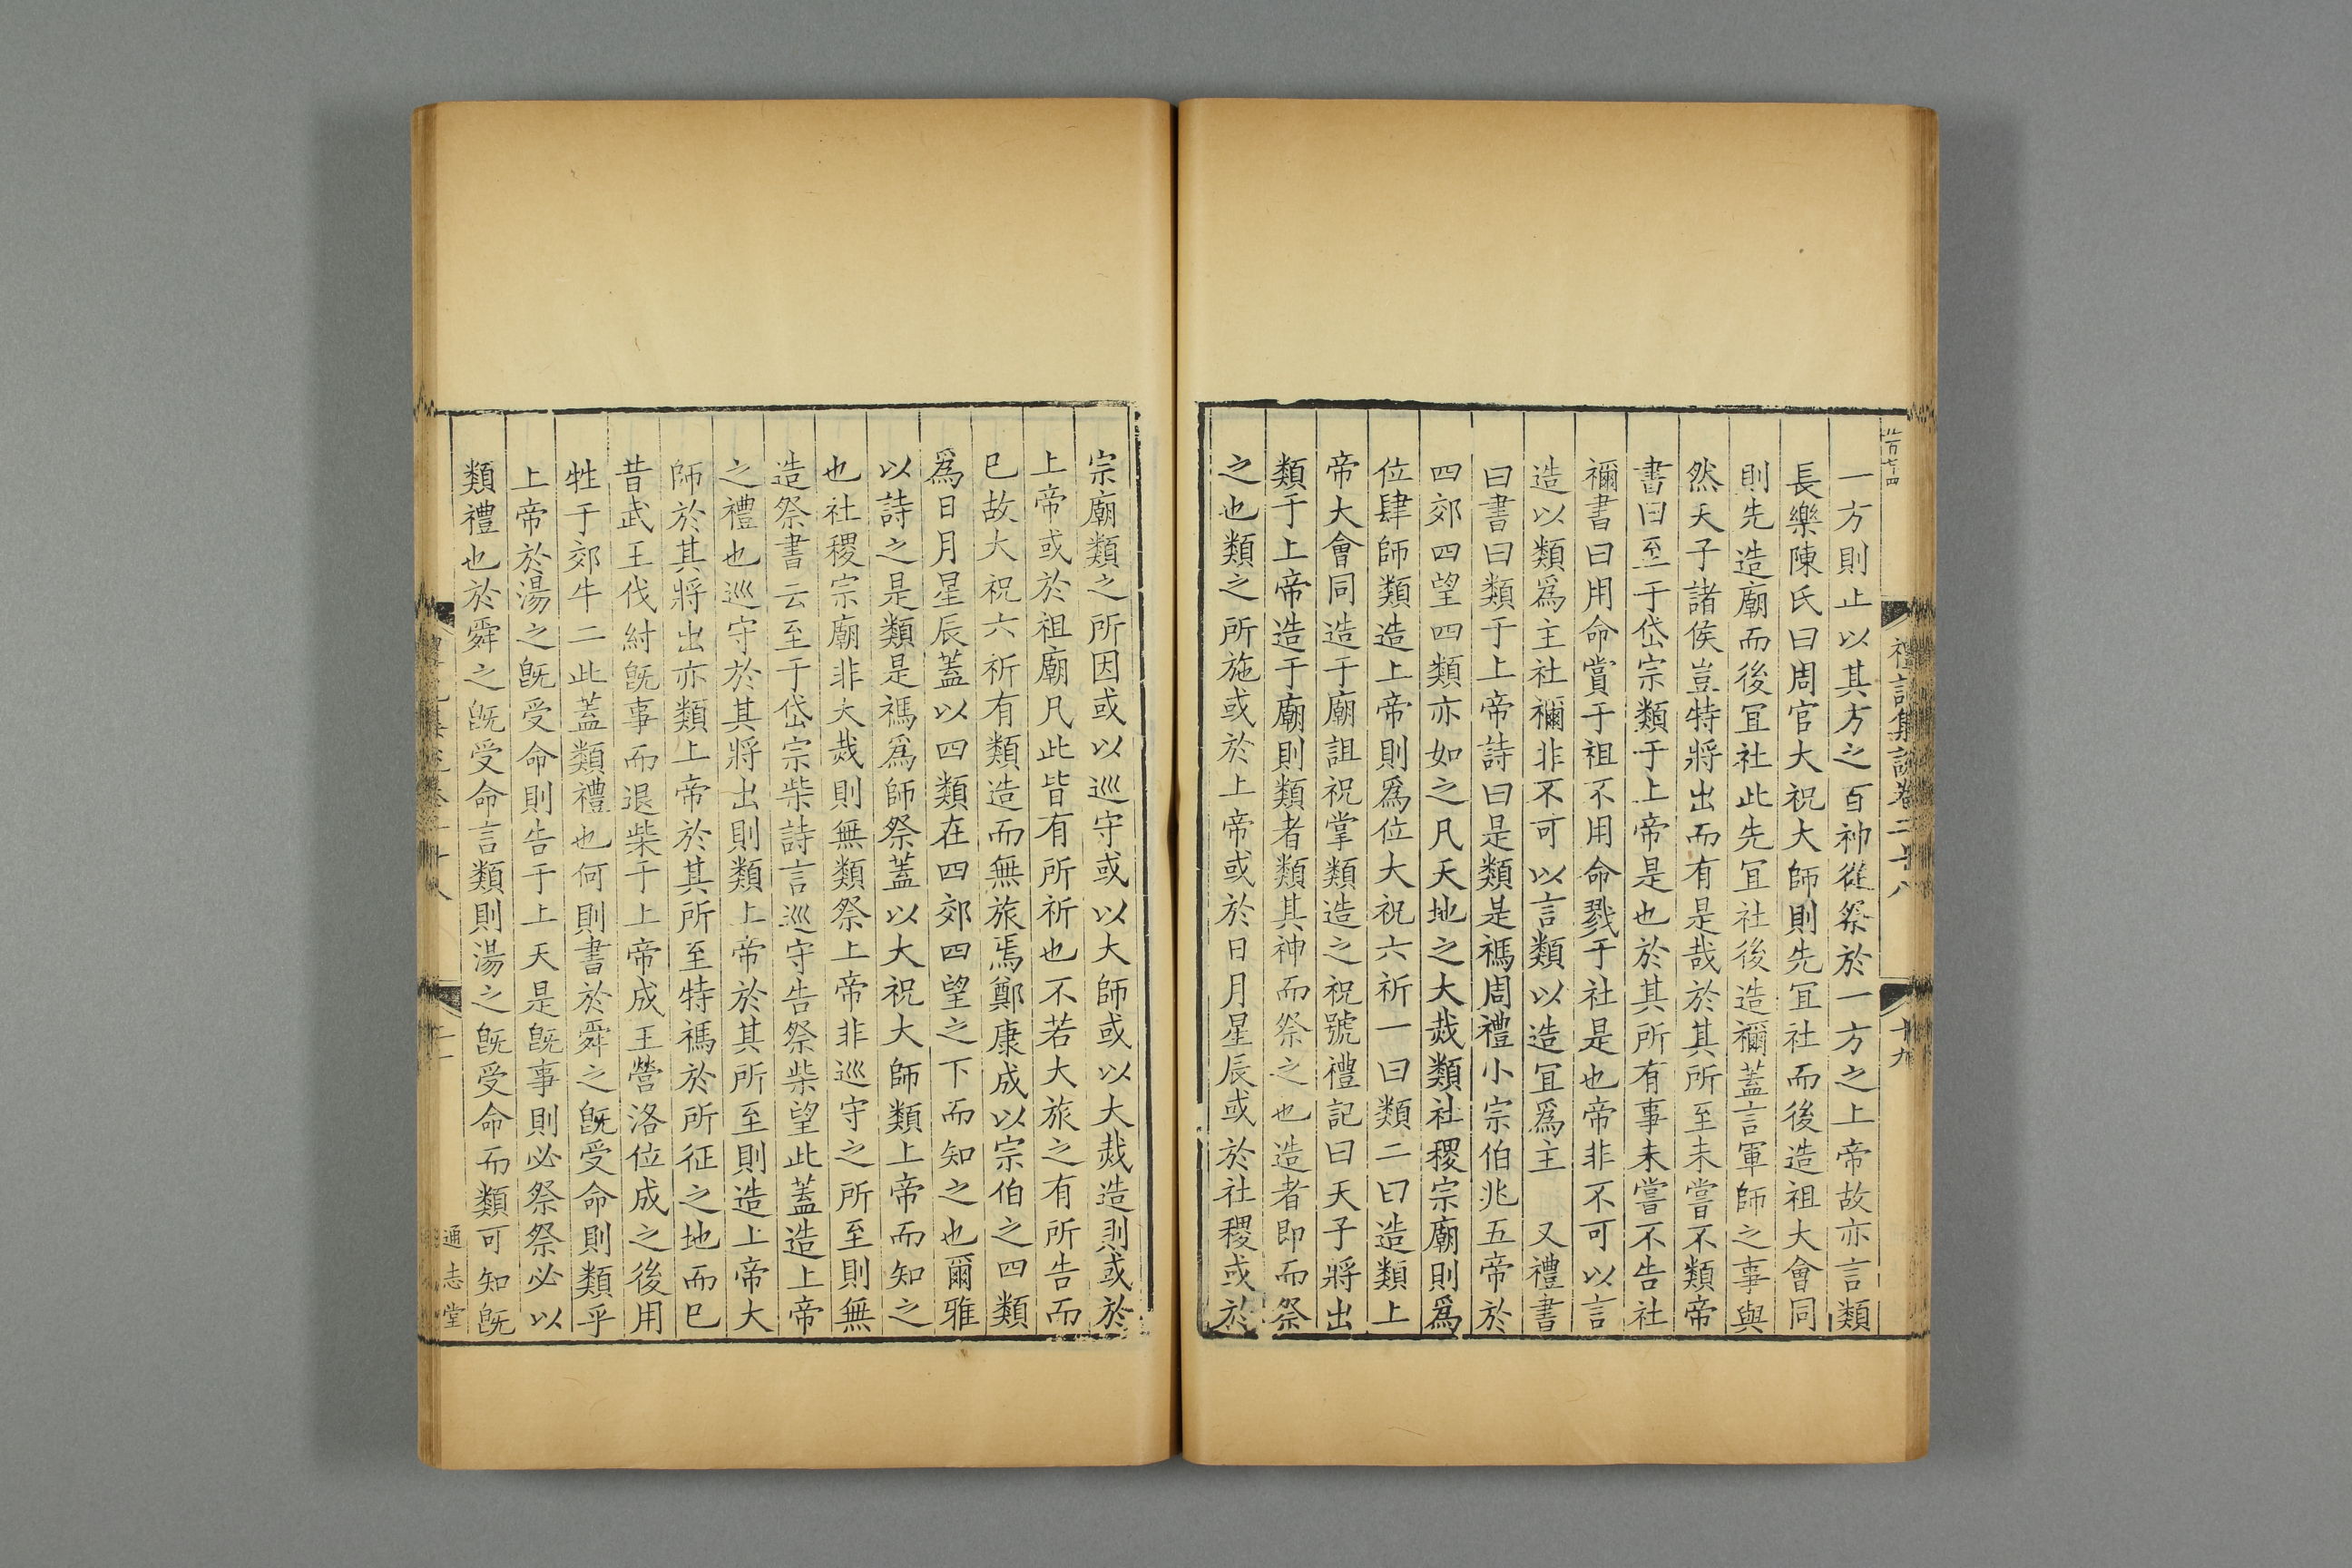 禮記集說卷二十八
十九
一方則止以其方之百神從祭於一方之上帝故亦言類
長樂陳氏曰周官大祝大師則先冝社而後造祖大會同
則先造廟而後冝社此先冝社後造禰蓋言軍師之事與
然天子諸侯豈特將出而有是哉於其所至未嘗不類帝
書曰至于岱宗類于上帝是也於其所有事未嘗不告社
禰書曰用命賞于祖不用命戮于社是也帝非不可以言
造以類爲主社禰非不可以言類以造冝爲主　又禮書
曰書曰類于上帝詩曰是類是禡周禮小宗伯兆五帝於
四郊四望四類亦如之凡天地之大烖類社稷宗廟則爲
位肆師類造上帝則爲位大祝六祈一曰類二曰造類上
帝大會同造于廟詛祝掌類造之祝號禮記曰天子將出
類于上帝造于廟則類者類其神而祭之也造者即而祭
之也類之所施或於上帝或於日月星辰或於社稷或於
宗廟類之所因或以巡守或以大師或以大烖造則或於
上帝或於祖廟凡此皆有所祈也不若大旅之有所告而
已故大祝六祈有類造而無旅焉鄭康成以宗伯之四類
爲日月星辰蓋以四類在四郊四望之下而知之也爾雅
以詩之是類是禡爲師祭蓋以大祝大師類上帝而知之
也社稷宗廟非大烖則無類祭上帝非巡守之所至則無
造祭書云至于岱宗柴詩言巡守告祭柴望此蓋造上帝
之禮也巡守於其將出則類上帝於其所至則造上帝大
師於其將出亦類上帝於其所至特禡於所征之地而已
昔武王伐紂旣事而退柴于上帝成王營洛位成之後用
牲于郊牛二此蓋類禮也何則書於舜之旣受命則類乎
上帝於湯之旣受命則告于上天是旣事則必祭祭必以
類禮也於舜之旣受命言類則湯之旣受命而類可知旣
通志堂